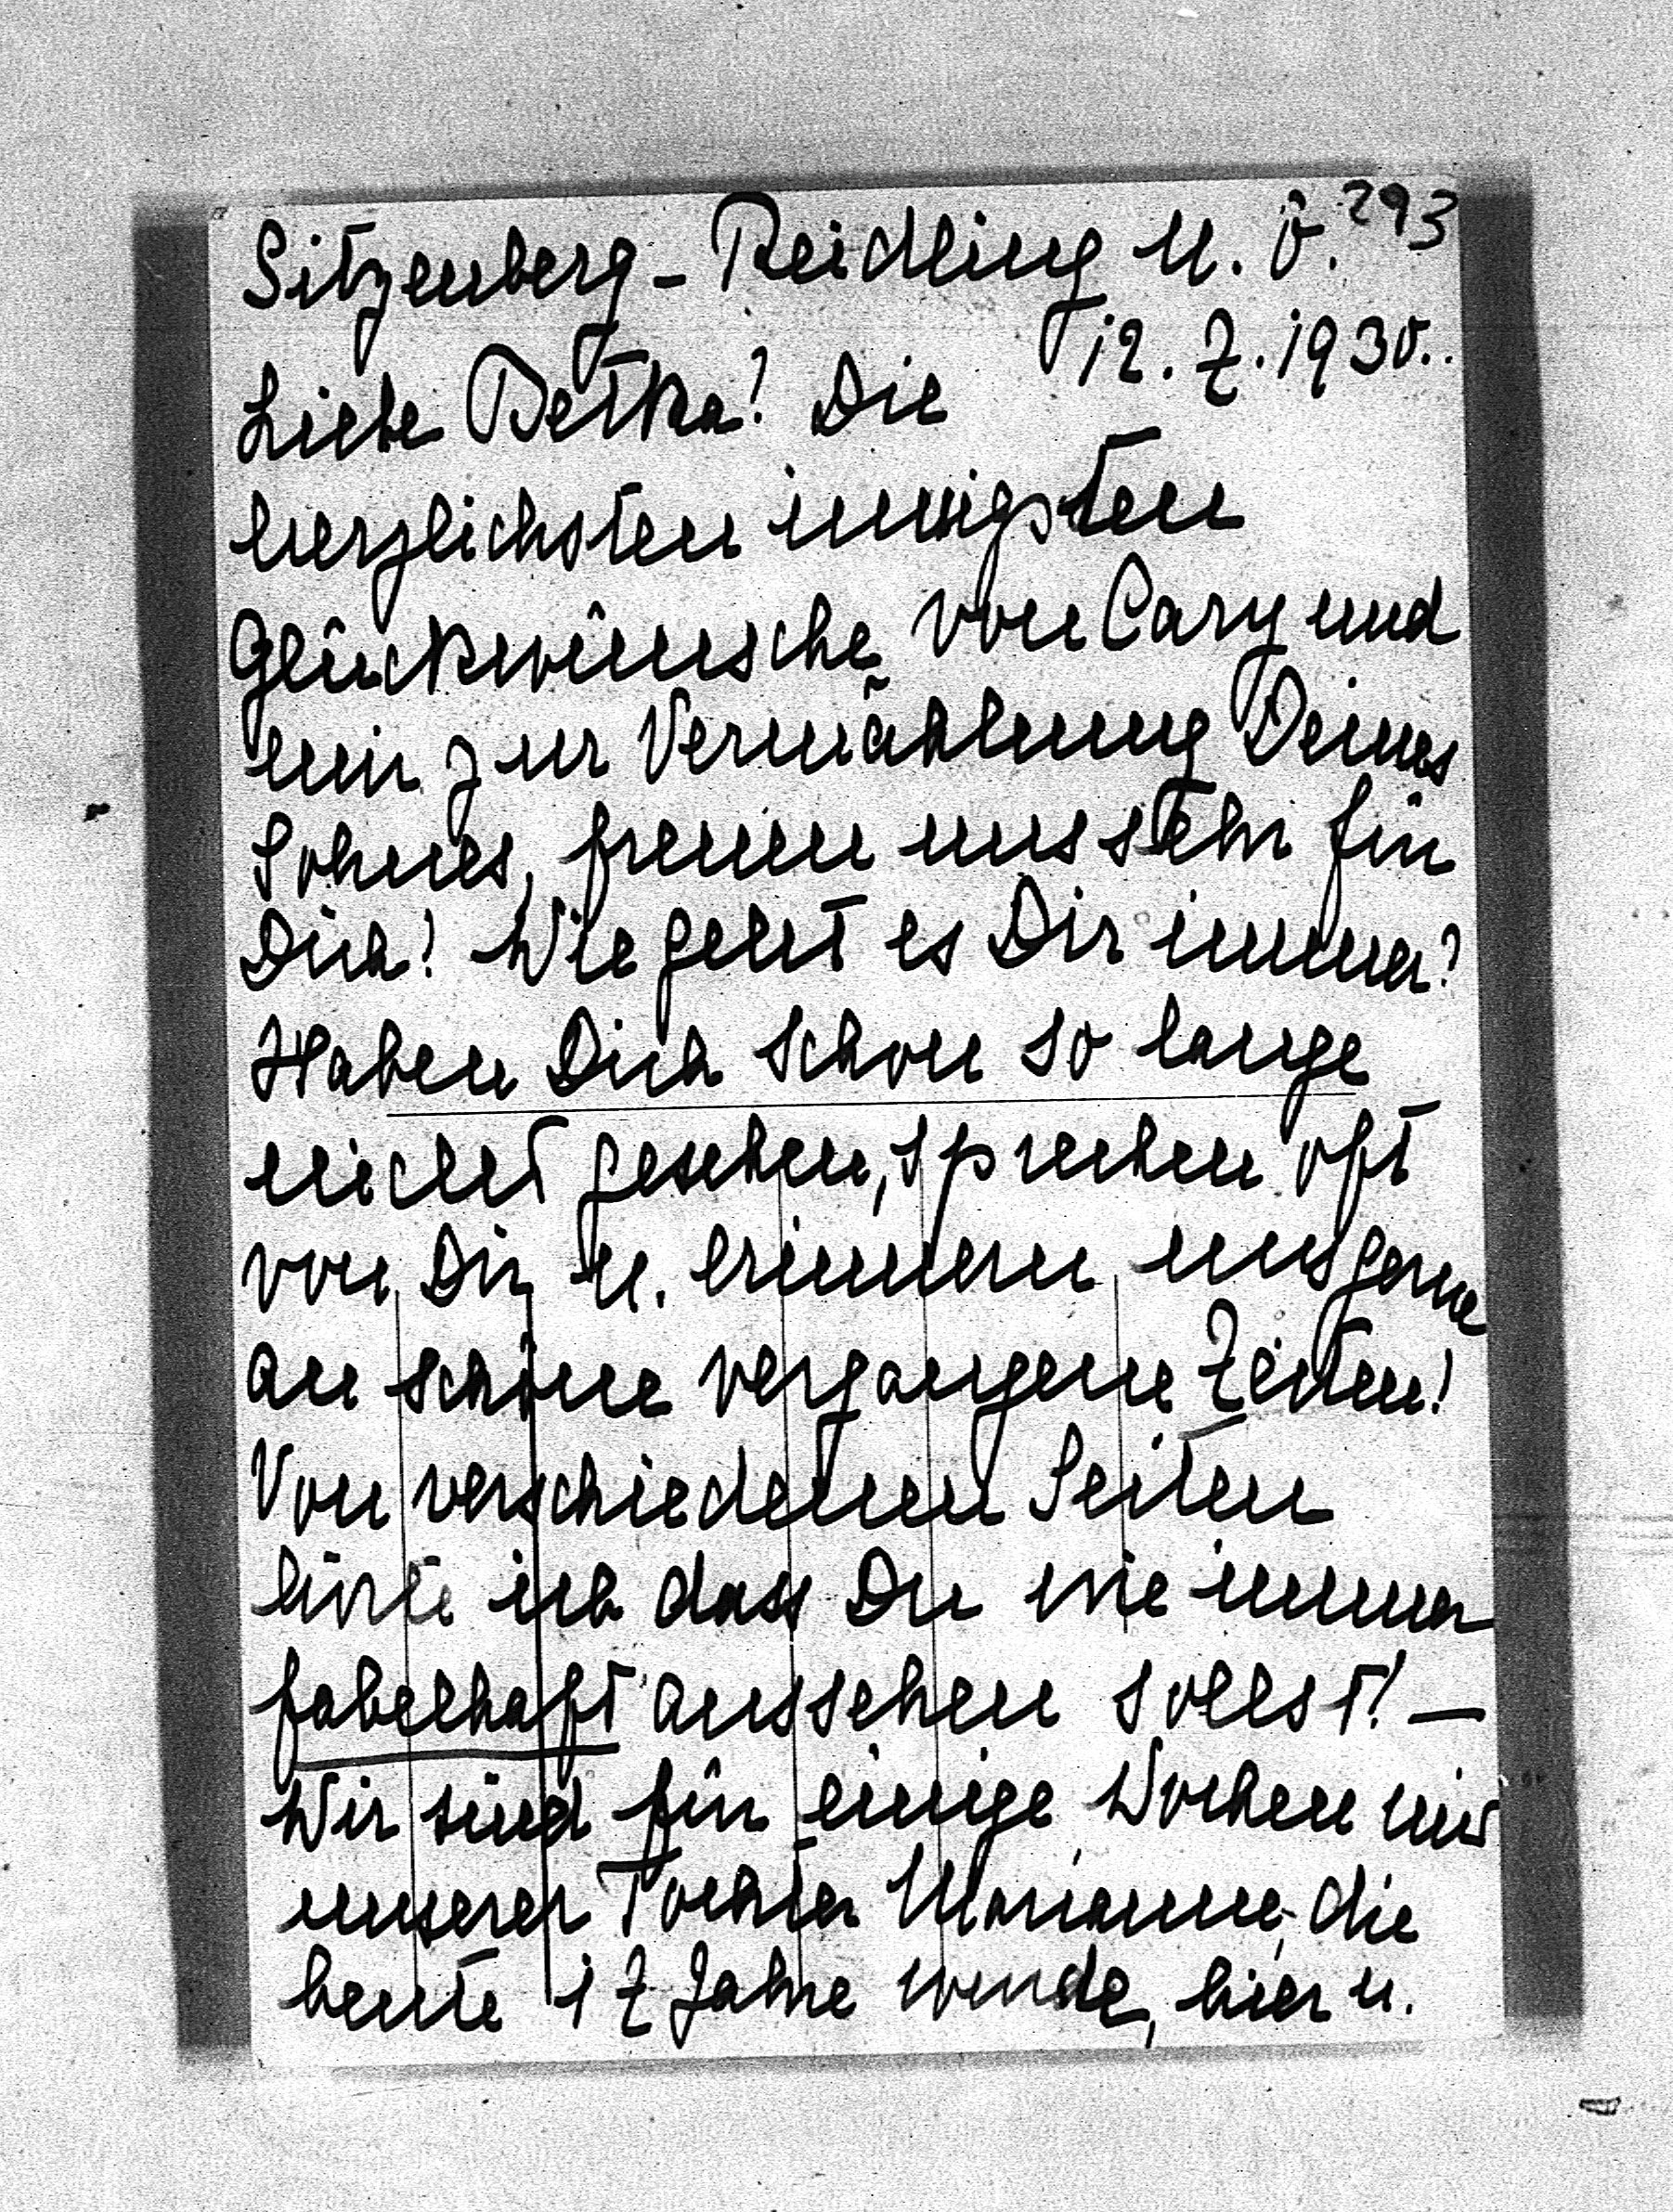 293
Sitzenberg-Reidling N. Ö.
12. 7. 1930..
Liebe Betka! Die
herzlichsten innigsten
Glückwünsche von Cary und
mir zur Vermählung Deines
Sohnes, freuen uns sehr für
Dich! Wie geht es Dir immer?
Haben Dich schon so lange
nicht gesehen, sprechen oft
von Dir u. erinnern uns gerne
an schöne vergangene Zeiten!
Von verschiedenen Seiten
hörte ich dass Du wie immer
fabelhaft aussehen sollst! –
Wir sind für einige Wochen mit
unserer Tochter Marianne, die
heute 17 Jahre wurde, hier u.